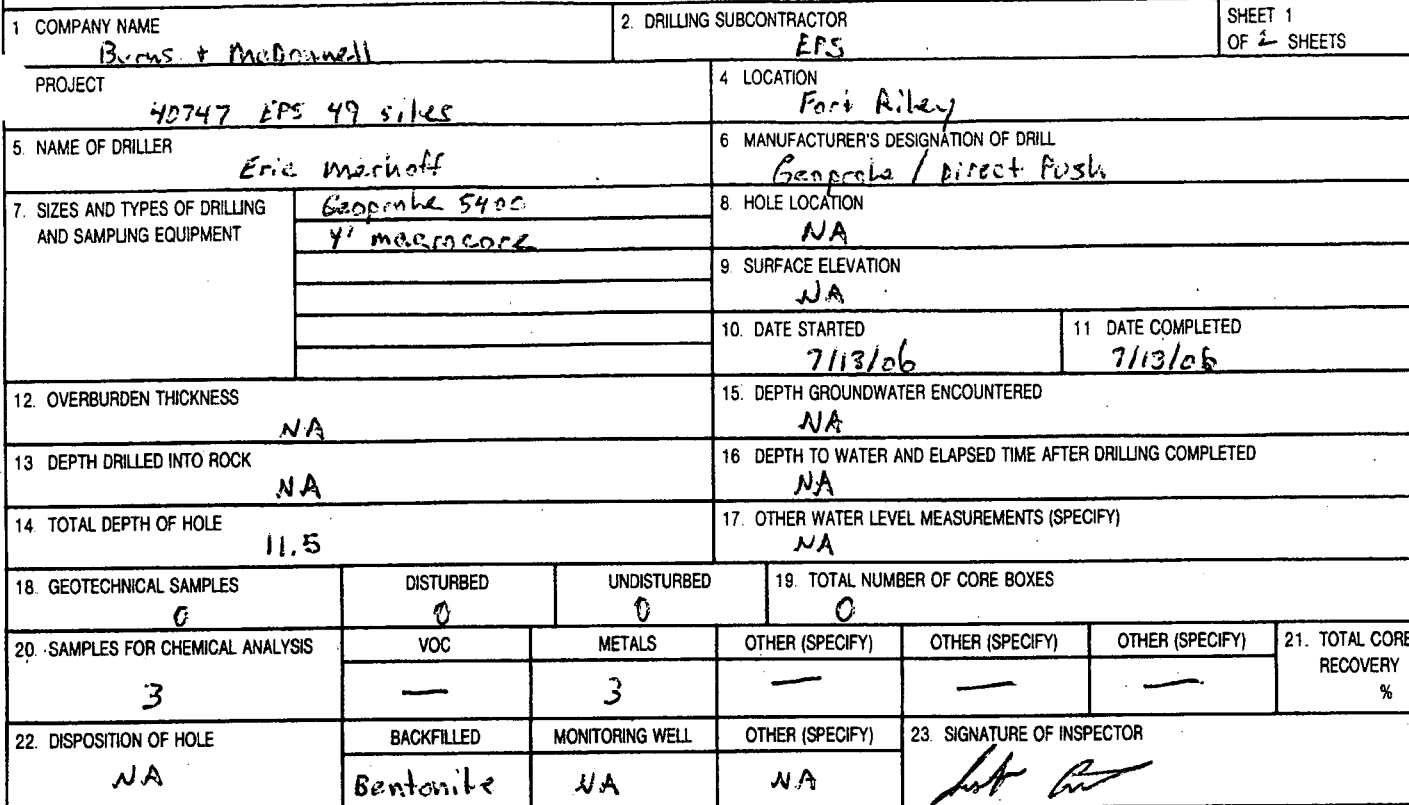 1 COMPANY NAME
Burns + McDonnell
2. DRILLING SUBCONTRACTOR
EPS
SHEET 1
OF 2 SHEETS
PROJECT
40747 EPS 49 sites
4 LOCATION
Fort Riley
5. NAME OF DRILLER
Eric
6 MANUFACTURER'S DESIGNATION OF DRILL
Geoprobe / Direct Push
7. SIZES AND TYPES OF DRILLING
AND SAMPLING EQUIPMENT
Geoprobe 5400
4' macrocore
8. HOLE LOCATION
NA
9. SURFACE ELEVATION
NA
10. DATE STARTED
7/13/06
11 DATE COMPLETED
7/13/06
12. OVERBURDEN THICKNESS
NA
15. DEPTH GROUNDWATER ENCOUNTERED
NA
13 DEPTH DRILLED INTO ROCK
NA
16 DEPTH TO WATER AND ELAPSED TIME AFTER DRILLING COMPLETED
NA
14. TOTAL DEPTH OF HOLE
11.5
17. OTHER WATER LEVEL MEASUREMENTS (SPECIFY)
NA
18. GEOTECHNICAL SAMPLES
0
DISTURBED
0
UNDISTURBED
0
19. TOTAL NUMBER OF CORE BOXES
0
20. SAMPLES FOR CHEMICAL ANALYSIS
3
VOC
—
METALS
3
OTHER (SPECIFY)
—
OTHER (SPECIFY)
—
OTHER (SPECIFY)
—
21. TOTAL CORE
RECOVERY
%
22. DISPOSITION OF HOLE
NA
BACKFILLED
Bentonite
MONITORING WELL
NA
OTHER (SPECIFY)
NA
23. SIGNATURE OF INSPECTOR